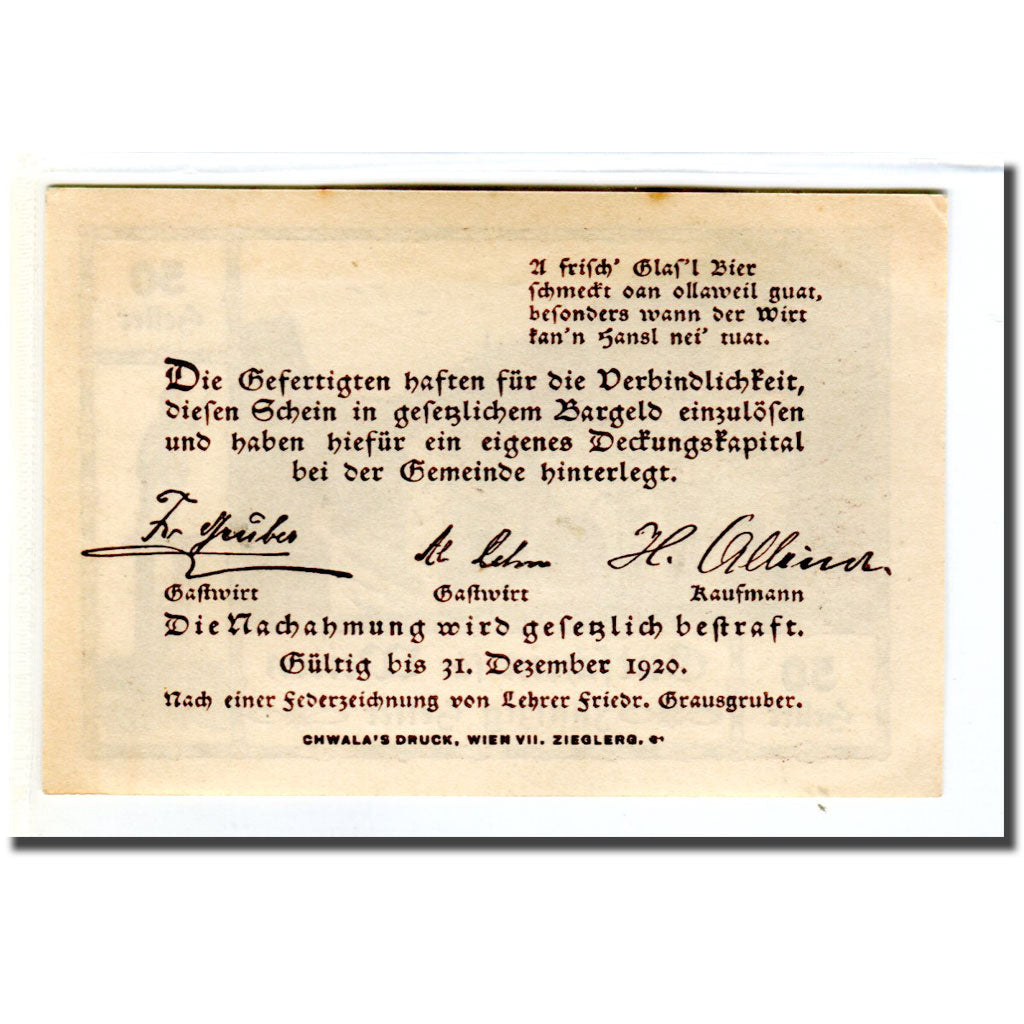 A frisch' Glas'l Bier
schmeckt oan ollaweil guat,
besonders wann der Wirt
kan'n Hansl nei' tuat.
Die Gefertigten haften für die Verbindlichkeit,
diesen Schein in gesetzlichem Bargeld einzulösen
und haben hiefür ein eigenes Deckungskapital
bei der Gemeinde hinterlegt.
Fr Gruber
Gastwirt Gastwirt Kaufmann
Die Nachahmung wird gesetzlich bestraft.
Gültig bis 31. Dezember 1920.
Nach einer Federzeichnung von Lehrer Friedr. Grausgruber.
CHWALA'S DRUCK, WIEN VII. ZIEGLERG.